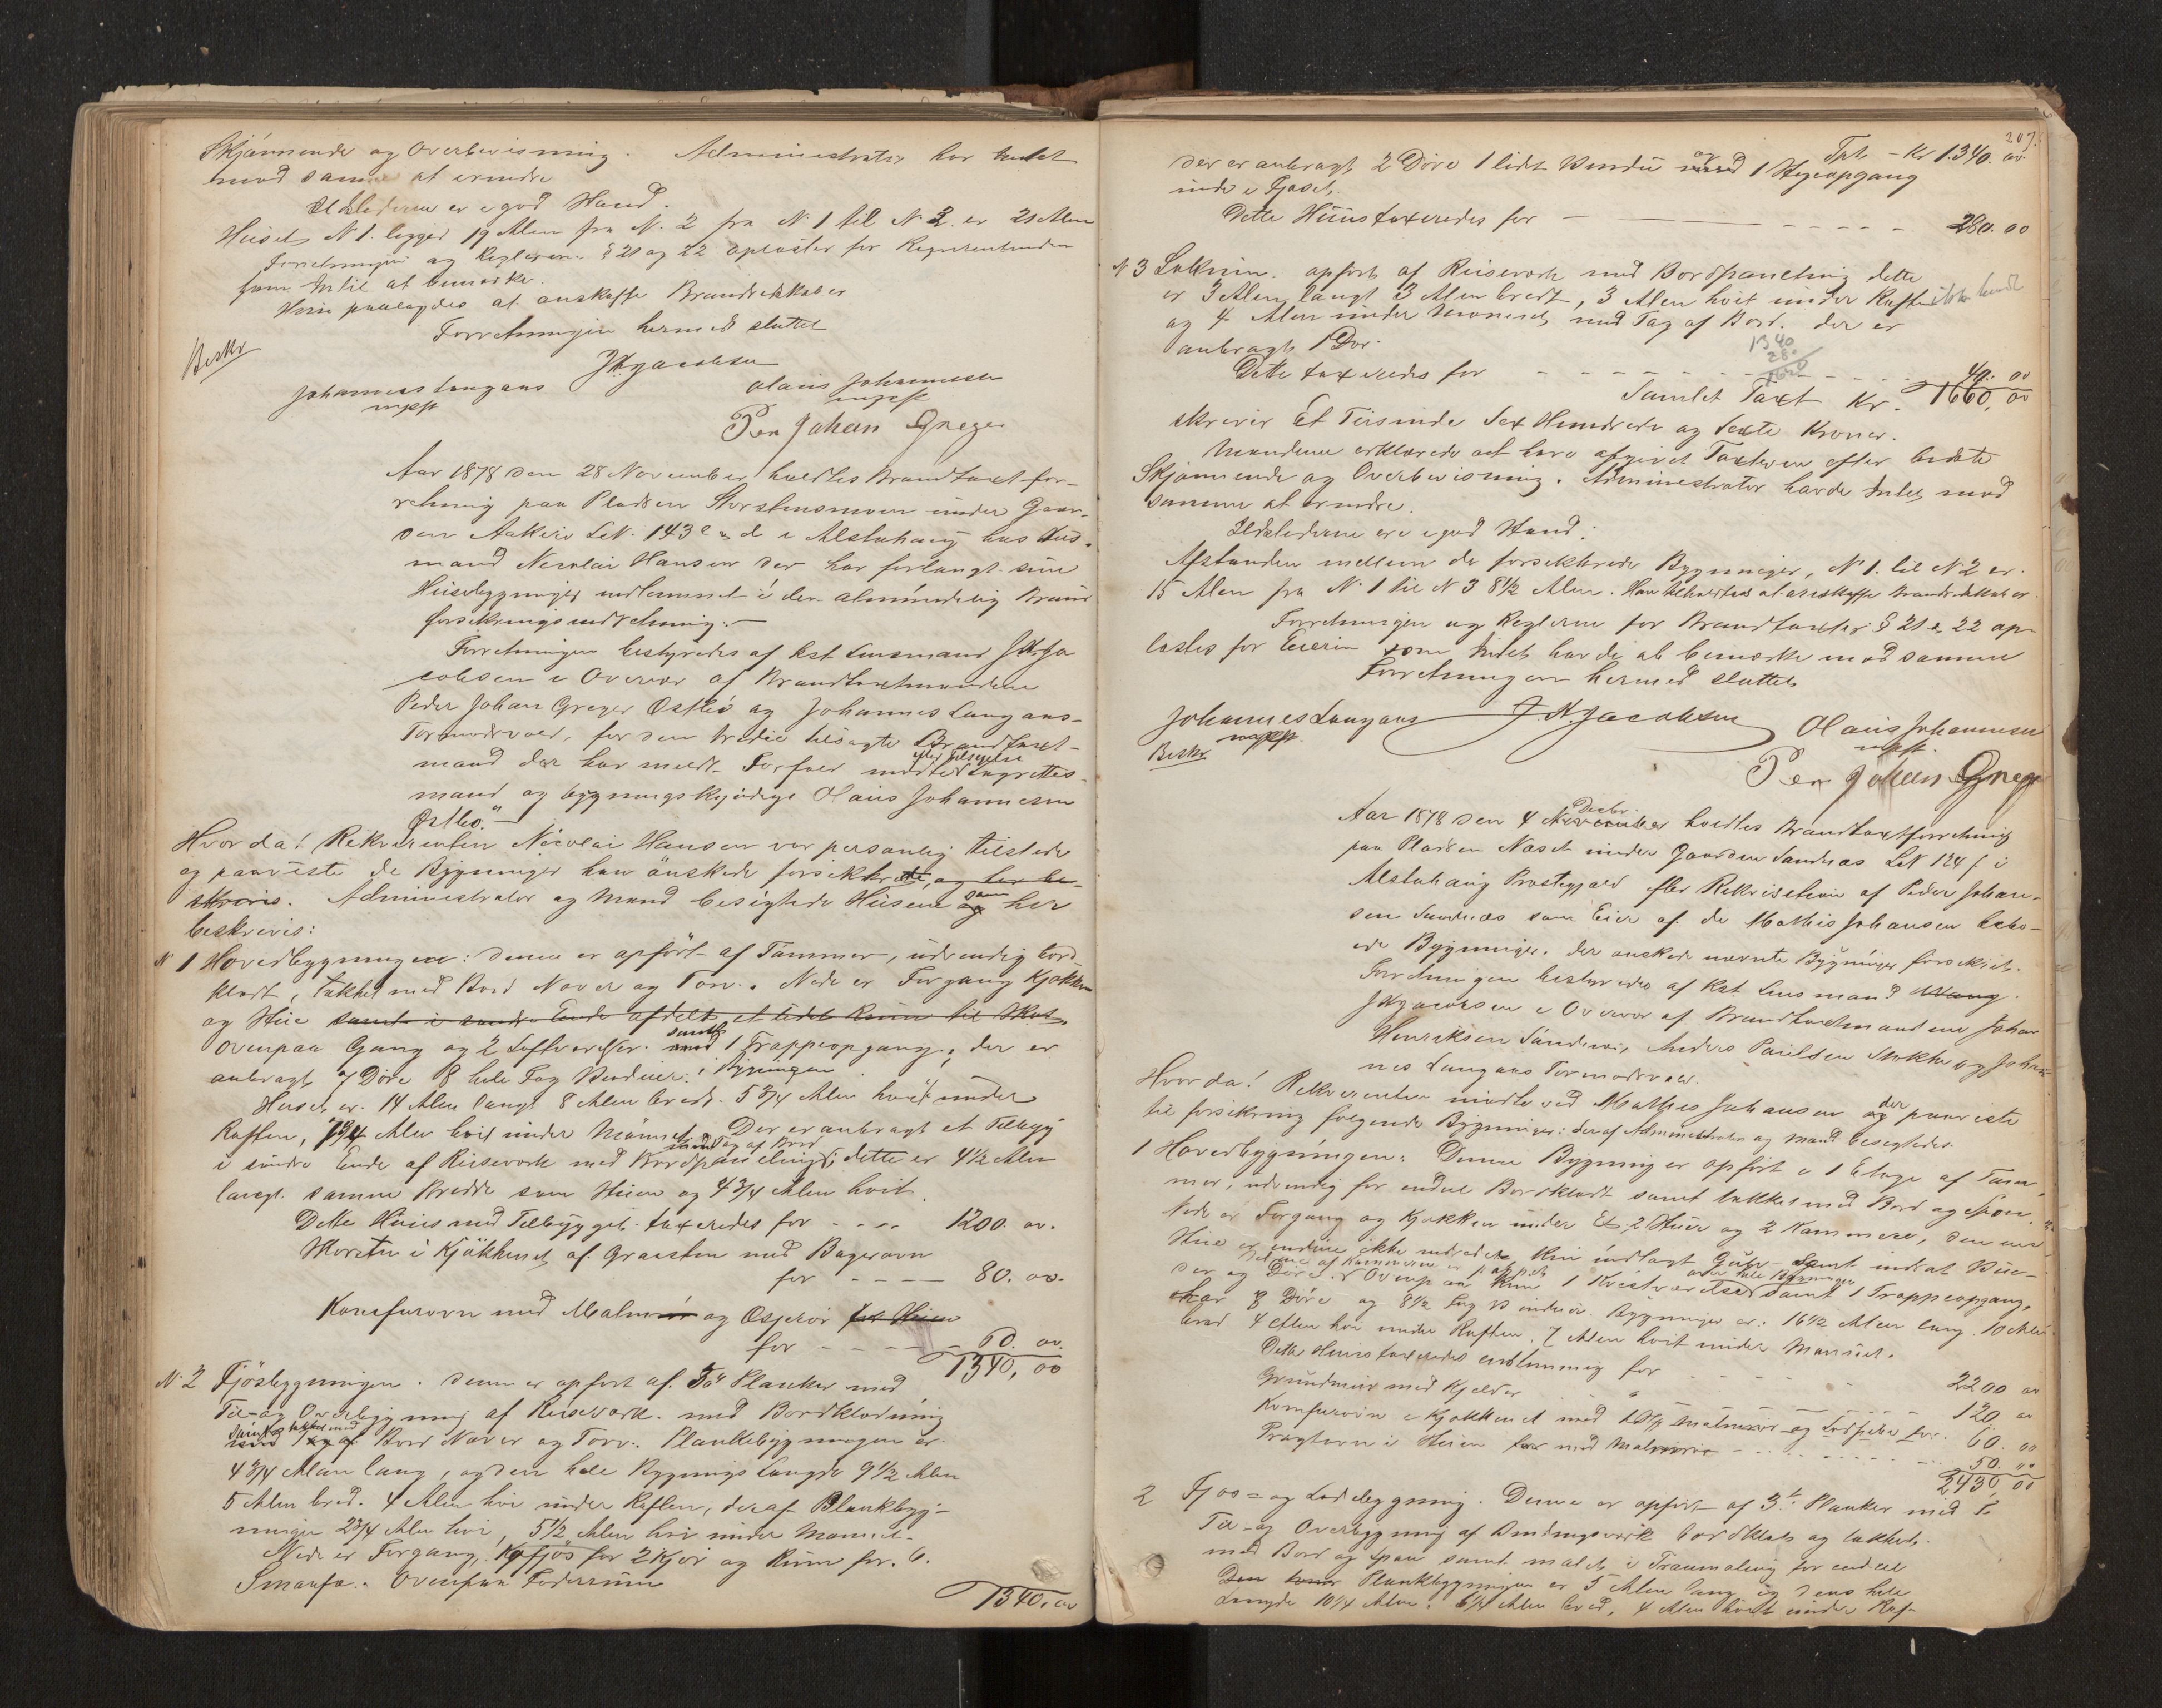 Skjønnende og Overbevisning. Administrator har Intet
mod samme at erindre
Ildstederne er i god Stand.
Huset N 1. ligger 19 Alen fra N. 2 fra N 1 til N 3 er 21 Alen
Forretningen og Reglerne § 21 og 22 oplæstes for Rekvirenten
som Intet at bemærke.
Han paalagdes at anskaffe Brandredskaber
Forretningen hermed sluttet
JNJacobsen
Beskr
Johannes Langaas Olaus Johannesen
mpp mpp
Per Johan Greger
Aar 1878 den 28 November holdtes Brandtaxtfor-
retning paa Pladsen Storstensmoen under Gaar-
den Aakerø LN. 143 i Alstahaug hos Hus-
mand Nicolai Hansen der har forlangt sine
Huusbygninger indlemmet i den almindelig Brand
forsikringsindretning.
Forretningen bestyredes af kst Lensmand JNJa
cobsen i Overvær af Brandtaxtmændene
Peder Johan Greger Østbø og Johannes Langaas
Tormodsvold, for den tredie tilsagte Brandtaxt-
mand der har meldt Forfald mødte efter Tilsigelse Lagrettes-
mand og bygningskyndige Olaus Johannesen
Østbø.
Hvorda! Rekvirenten Nicolai Hansen var personlig tilstede
og paaviste de Bygninger han ønskede forsikkrede, og her be-
skrives. Administrator og Mænd besigtede Husene som her
beskrives:
N 1 Hovedbygningen: denne er opført af Tømmer, udvendig bord-
klædt, tækket med Bord Næver og Torv. Nede er Forgang Kjøkken
og Stue samt i søndre Ende afdelt et lidet Rum til
Ovenpaa Gang og 2 Loftværelser. samt 1 Trappeopgang, der er
anbragt 7 Døre 8 hele Fag Vinduer i Bygningen
Huset er 14 Alen langt 8 Alen bredt. 5 3/4 Alen høit under
Raften, Alen høit under Mønnet. Der er anbragt et Tilbyg
i søndre Ende af Reisværk med Bordpaneling med Tag af Bord; dette er 4 1/2 Alen
langt samme Bredde som Huset og 4 3/4 Alen høit.
Dette Huus med Tilbygget taxeredes for - - - 1200. 00.
Skorsten i Kjøkkenet af Graasten med Bagerovn
for - - - - 80. 00.
Komfurovn med Malmrør og Osperør
for - - - - 60. 00.
1340, 00
N. 2 Fjøsbygningen. denne er opført af 3" Planker med
Til- og Overbygning af Reisværk med Bordklædning
samt tækket med Bord Næver og Torv. Plankebygningen er
4 3/4 Alen lang, og den hele Bygnings Længde 9 1/2 Alen
5 Alen bred. 4 Alen høi under Raften, deraf Plankbyg-
ningen 2 3/4 Alen høi, 5 1/2 Alen høi under Mønnet.
Nede er Forgang, Kofjøs for 2 Kjør og Rum for 6.
Smaafæ. Ovenpaa Foderrum
1340. 00
207.
Tpt - Kr 1.340. 00
der er anbragt 2 Døre 1 lidet Vindu og 1 Steopgang
inde i Fjøset.
Dette Huus taxeredes for - - - - - - 280. 00
N 3 Lokrum. opført af Reisværk med Bordpaneling dette
er 3 Alen langt 3 Alen bredt, 3 Alen høit under Raften
og 4 Alen under Mønnet med Tag af Bord. der er
anbragt 1 Dør.
1340
280
1620
Dette taxeredes for - - - - - 40. 00
Samlet Taxt Kr. 1660, 00
skriver Et Tusinde Sex Hundrede og Sexti Kroner.
Mændene erklærede at have afgivet Taxterne efter bedste
Skjønnende og Overbevisning. Administrator havde Intet mod
samme at erindre.
Ildstederne ere i god Stand.
Afstanden mellem de forsikkrede Bygninger, N 1. til N 2 er
15 Alen fra N. 1 til N 3 8 1/2 Alen. Han tilholdtes at anskaffe Brandredskaber
Forretningen og Reglerne for Brandtaxter § 21 og 22 op-
læstes for Eieren som Intet havde at bemærke mod samme
Forretningen hermed sluttet
Johannes Langaas JNJacobsen Olaus Johannesen
mpp. mpp.
Beskr
Per Johan Greger
Aar 1878 den 4 Decbr. holdtes Brandtaxtforretning
paa Pladsen Næset under Gaarden Sandnæs LN 124 f i
Alstahaug Præstegjæld efter Rekvisition af Peder Johan-
sen Sandnæs som Eier af de Mathis Johansen bebo-
ede Bygninger, der ønskede nævnte Bygninger forsikret.
Forretningen bestyredes af kst Lensmand
JNJacobsen i Overvær af Brandtaxtmændene Johan
Henriksen Sandnæs, Anders Paulsen Stokke og Johan-
nes Langaas Tormodsvold.
Hvorda! Rekvirenten mødte ved Mathis Johansen der paaviste
til forsikring følgende Bygninger: der af Administrator og Mænd besigtedes.
1 Hovedbygningen: Denne Bygning er opført i 1 Etage af Tøm-
mer, udvendig for endeel Bordklædt samt tækket med Bord og Spon.
Nede er Forgang og Kjøkken under Et, 2 Stuer og 2 Kammere, den ene
Stue er endnu ikke indredet, kun indlagt Gulv samt indsat Vin-
der og Døre. Ovenpaa kun 1 Kvistværelse samt 1 Trappeopgang,
har 8 Døre og 8 1/2 Fag Vinduer. Bygningen er 16 1/2 Alen lang 10 Alen
bred 4 Alen høi under Raften, 7 Alen høit under Mønnet.
Dette Huus taxeredes for - - - - 2200 00
Grundmur med Kjelder - - - 120 00
Komfurovn i Kjøkkenet med Malmrør og for. 60. 00
Pragtovn i Stuen med Malmrør - - - - 50. 00
2430, 00
2 Fjøs- og Ladebygning. Denne er opført af 3" Planker med
Til- og Overbygning af Bindingsværk bordklædt og tækket
med Bord og Spon samt malet i Tranmaling for endeel
Plankbygningen er 5 Alen lang og dens hele
Længde 10 1/4 Alen. 6 1/4 Alen bred, 4 Alen høit under Raf-